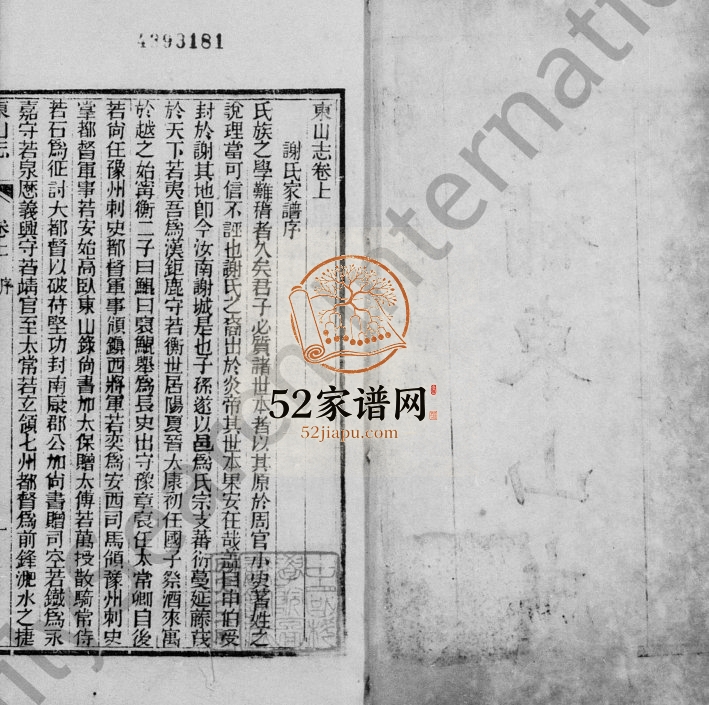 4393181
東山志卷上
謝氏家譜序
氏族之學難稽者久矣君子必質諸世本者以其原於周官小史著姓之
說理當可信不誣也謝氏之裔出於炎帝其世本果安在哉蓋自申伯受
封於謝其地卽今汝南謝城是也子孫遂以邑爲氏宗支蕃衍蔓延藤茂
於天下若夷吾爲漢鉅鹿守若衡世居陽夏晉大康初任國子祭酒來寓
於越之始寧衡二子曰鯤曰裒鯤舉爲長史出守豫章裒任太常卿自後
若尙任豫州刺史都督軍事領鎭西將軍若奕爲安西司馬領豫州刺史
掌都督軍事若安始高臥東山錄尙書加太保贈太傅若萬授散騎常侍
若石爲征討大都督以破苻堅功封南康郡公加尙書贈司空若鐵爲永
嘉守若泉歷義興守若靖官至太常若玄領七州都督爲前鋒淝水之捷
東山志 卷上 序 一
東山
52家谱网
52jiapu.com